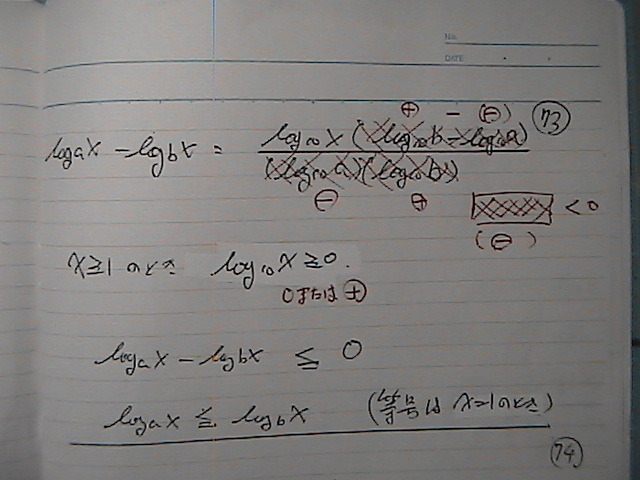 No.
DATE
⊕ − (⊖) 73
logₐx − log_b x = log₁₀x (log₁₀b − log₁₀a) / (log₁₀a)(log₁₀b)
⊖ ⊕ < 0
(⊖)
x ≧ 1 のとき log₁₀x ≧ 0.
0または⊕
logₐx − log_b x ≦ 0
logₐx ≦ log_b x (等号は x=1のとき)
74